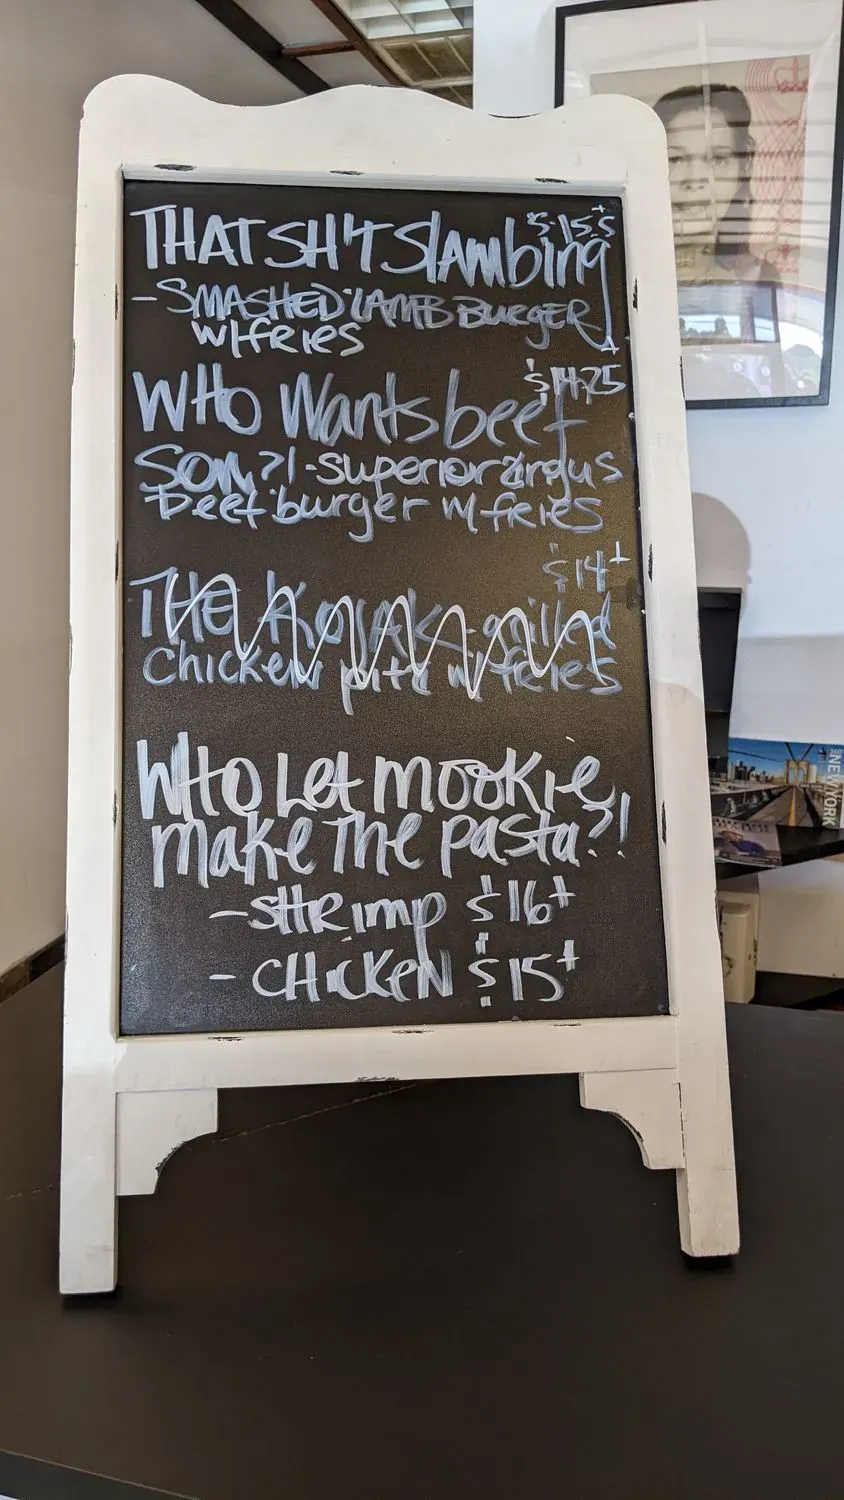 THAT SH!T Slambing
- SMASHED LAMB BURGER
w/fries
$14.75+
WHO Wants beef
Son?! - superior angus
beef burger w/ fries
$14+
THE KOJAK - grilled
Chicken pita w/ fries
WHO Let mookie
make The pasta?!
- SHRIMP $16+
- CHICKEN $15+
360°
NEW YORK